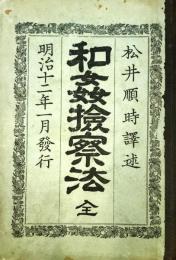 松井順時譯述
和姦撿察法 全
明治十二年一月發行